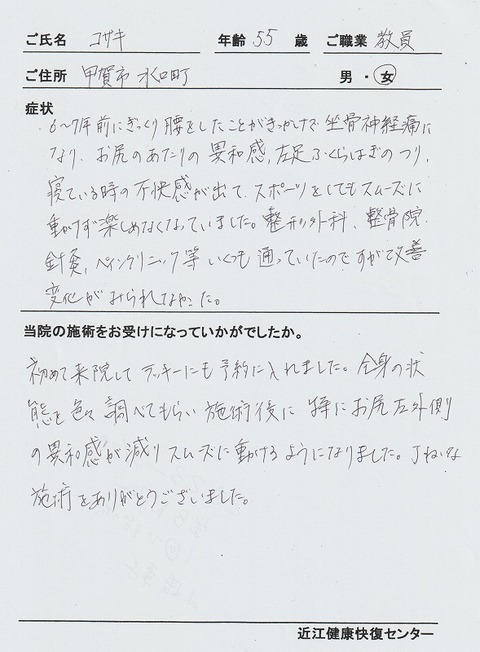 ご氏名 コザキ 年齢 55 歳 ご職業 教員
ご住所 甲賀市 水口町 男・女
症状
6〜7年前にぎっくり腰をしたことがきっかけで坐骨神経痛に
なり、お尻のあたりの異和感、左足ふくらはぎのつり、
寝ている時の不快感が出て、スポーツをしてもスムーズに
動かず楽しめなくなっていました。整形外科、整骨院、
針灸、ペインクリニック等いくつも通っていたのですが改善
変化がみられなかった。
当院の施術をお受けになっていかがでしたか。
初めて来院してラッキーにも予約に入れました。全身の状
態を色々調べてもらい施術後に特にお尻左外側
の異和感が減りスムーズに動けるようになりました。丁ねいな
施術をありがとうございました。
近江健康快復センター